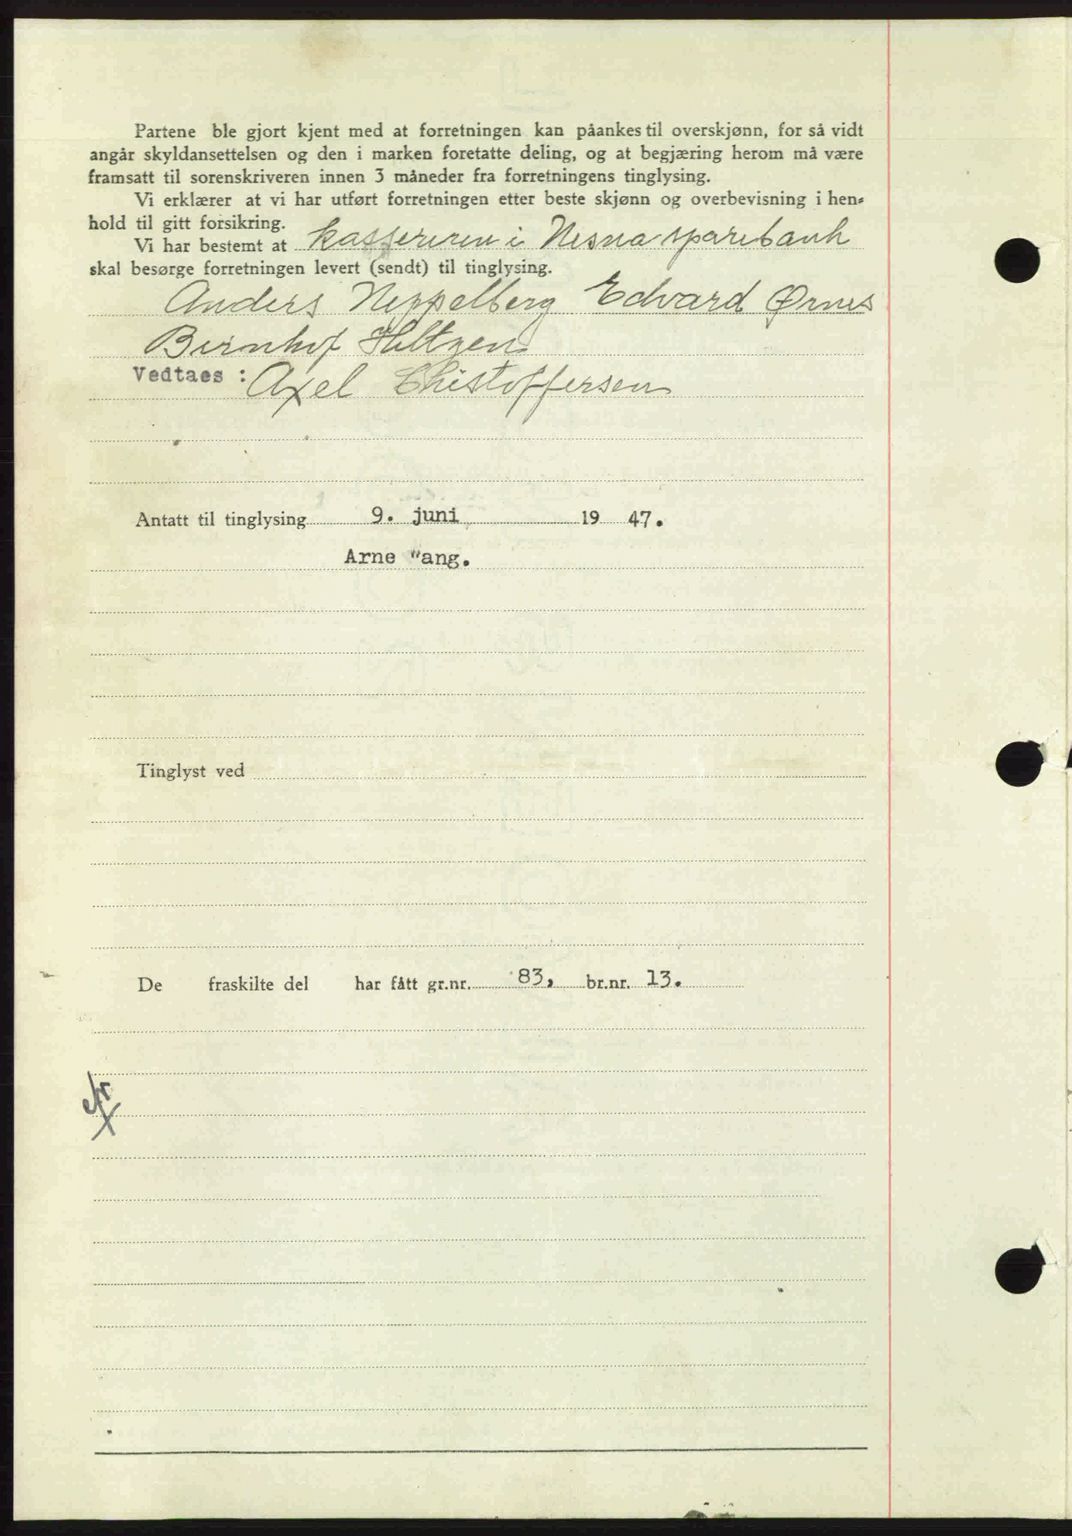 Partene ble gjort kjent med at forretningen kan påankes til overskjønn, for så vidt
angår skyldansettelsen og den i marken foretatte deling, og at begjæring herom må være
framsatt til sorenskriveren innen 3 måneder fra forretningens tinglysing.
Vi erklærer at vi har utført forretningen etter beste skjønn og overbevisning i hen-
hold til gitt forsikring.
Vi har bestemt at kassereren i Nesna sparebank
skal besørge forretningen levert (sendt) til tinglysing.
Anders Neppelberg Edvard Ørnes
Bernhof Hiltzen
Vedtaes : Axel Chistoffersen
Antatt til tinglysing 9. juni 19 47.
Arne "ang.
Tinglyst ved
De fraskilte del har fått gr.nr. 83, br.nr. 13.